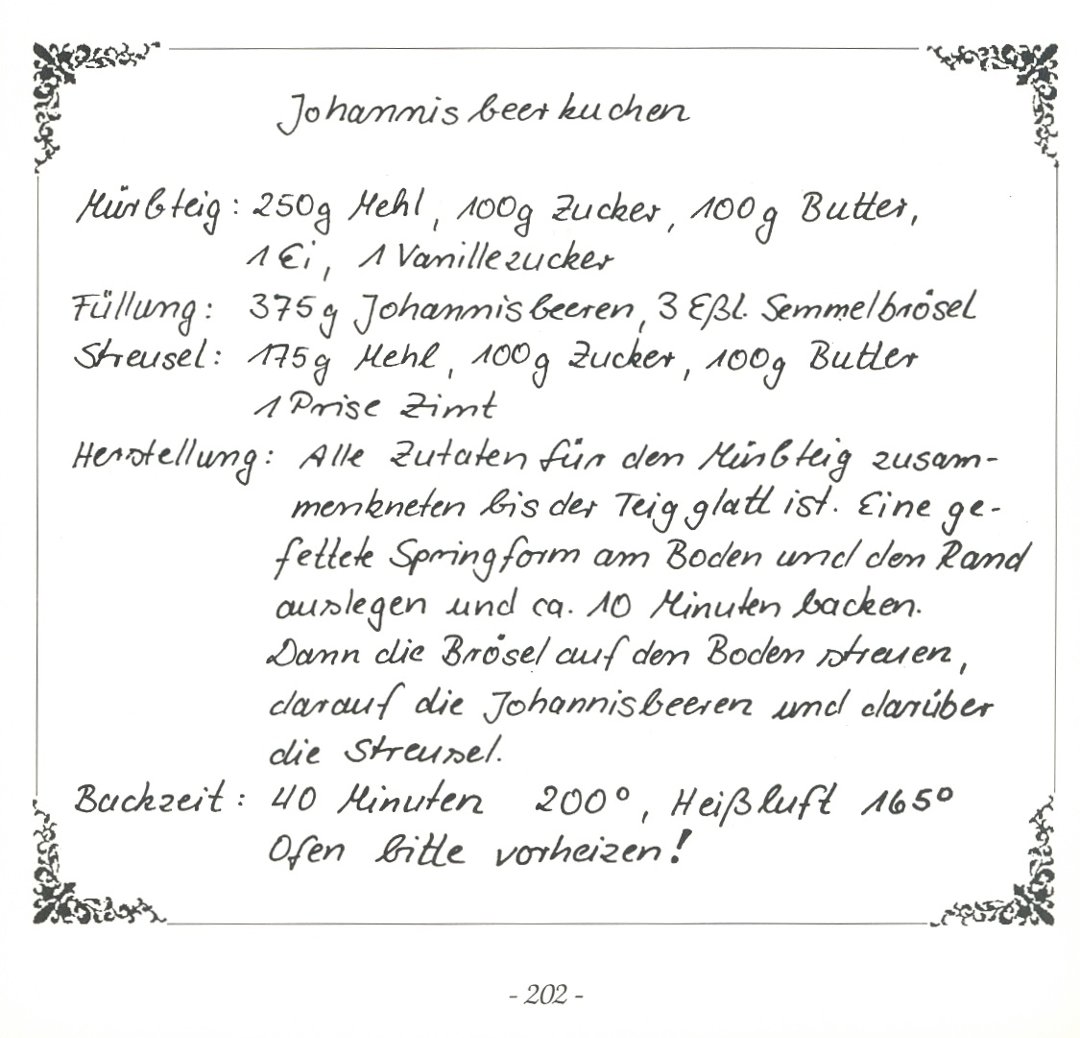 Johannisbeerkuchen
Mürbteig: 250g Mehl, 100g Zucker, 100g Butter,
1 Ei, 1 Vanillezucker
Füllung: 375g Johannisbeeren, 3 Eßl. Semmelbrösel
Streusel: 175g Mehl, 100g Zucker, 100g Butter
1 Prise Zimt
Herstellung: Alle Zutaten für den Mürbteig zusam-
menkneten bis der Teig glatt ist. Eine ge-
fettete Springform am Boden und den Rand
auslegen und ca. 10 Minuten backen.
Dann die Brösel auf den Boden streuen,
darauf die Johannisbeeren und darüber
die Streusel.
Backzeit: 40 Minuten 200°, Heißluft 165°
Ofen bitte vorheizen!
- 202 -